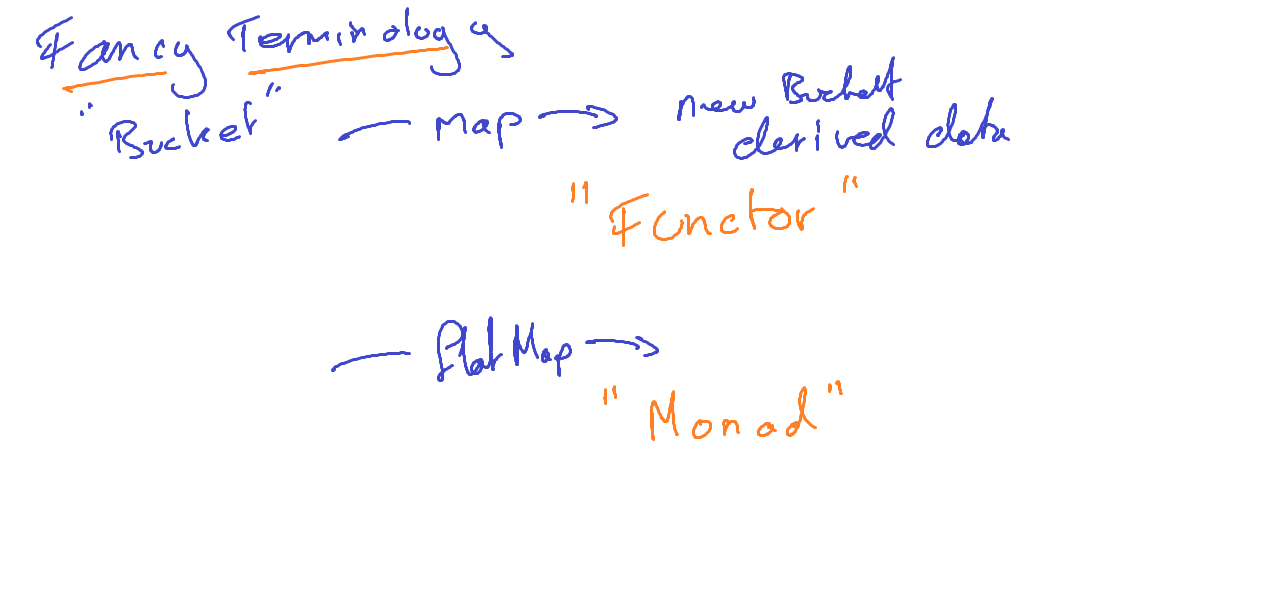 Fancy Terminology
"Bucket" map new Bucket
derived data
"Functor"
flatMap
"Monad"